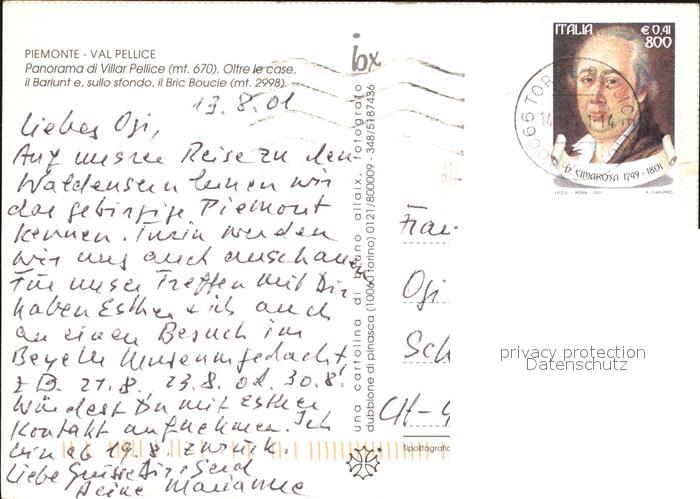 PIEMONTE - VAL PELLICE
Panorama di Villar Pellice (mt. 670). Oltre le case,
il Bariunt e, sullo sfondo, il Bric Boucie (mt. 2998).
bx
ITALIA
€ 0,41
800
D. CIMAROSA 1749 - 1801
I.P.Z.S. - ROMA - 2001
13.8.01
Liebes Ogi,
Auf unsrer Reise zu den
Waldensern lernen wir
das gebirgige Piemont
kennen. Turin werden
wir uns auch anschauen
Für unser Treffen mit Dir
haben Esther & ich auch
an einen Besuch im
Beyeler Museum gedacht,
z.B. 21.8. 23.8. od. 30.8.
Würdest Du mit Esther
Kontakt aufnehmen. Ich
bin ab 19.8. zurück.
Liebe Grüsse Dir &
Deine Marianne
una cartolina di bruno allaix, fotografo
dubbione di pinasca (10060 torino) 0121/800009 - 348/5187436
Frau
Ogi
Sch
CH-4
Tipolitografic
privacy protection
Datenschutz